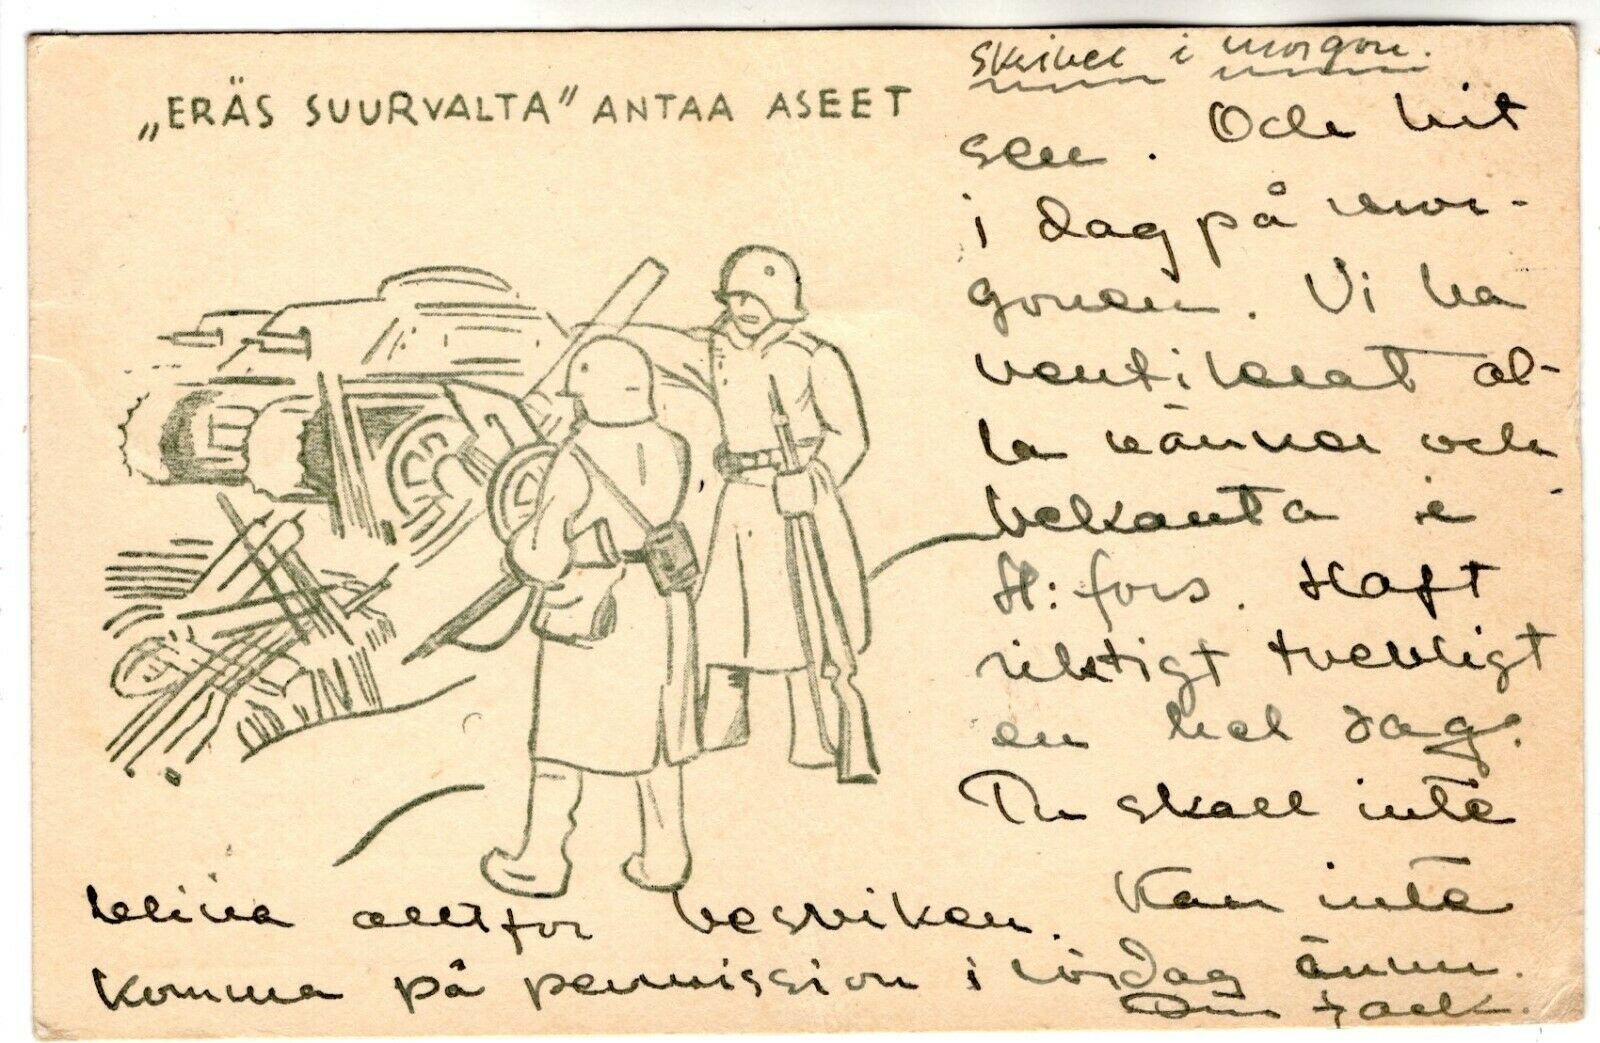 „ERÄS SUURVALTA” ANTAA ASEET
Skriver i morgon.
sen. Och hit
i dag på mor-
gonen. Vi ha
ventilerat al-
la vänner och
bekanta i
H:fors. Haft
riktigt trevligt
en hel dag.
Du skall inte
bliva alltför besviken. Kan inte
komma på permission i lördag ännu.
Din Jack.